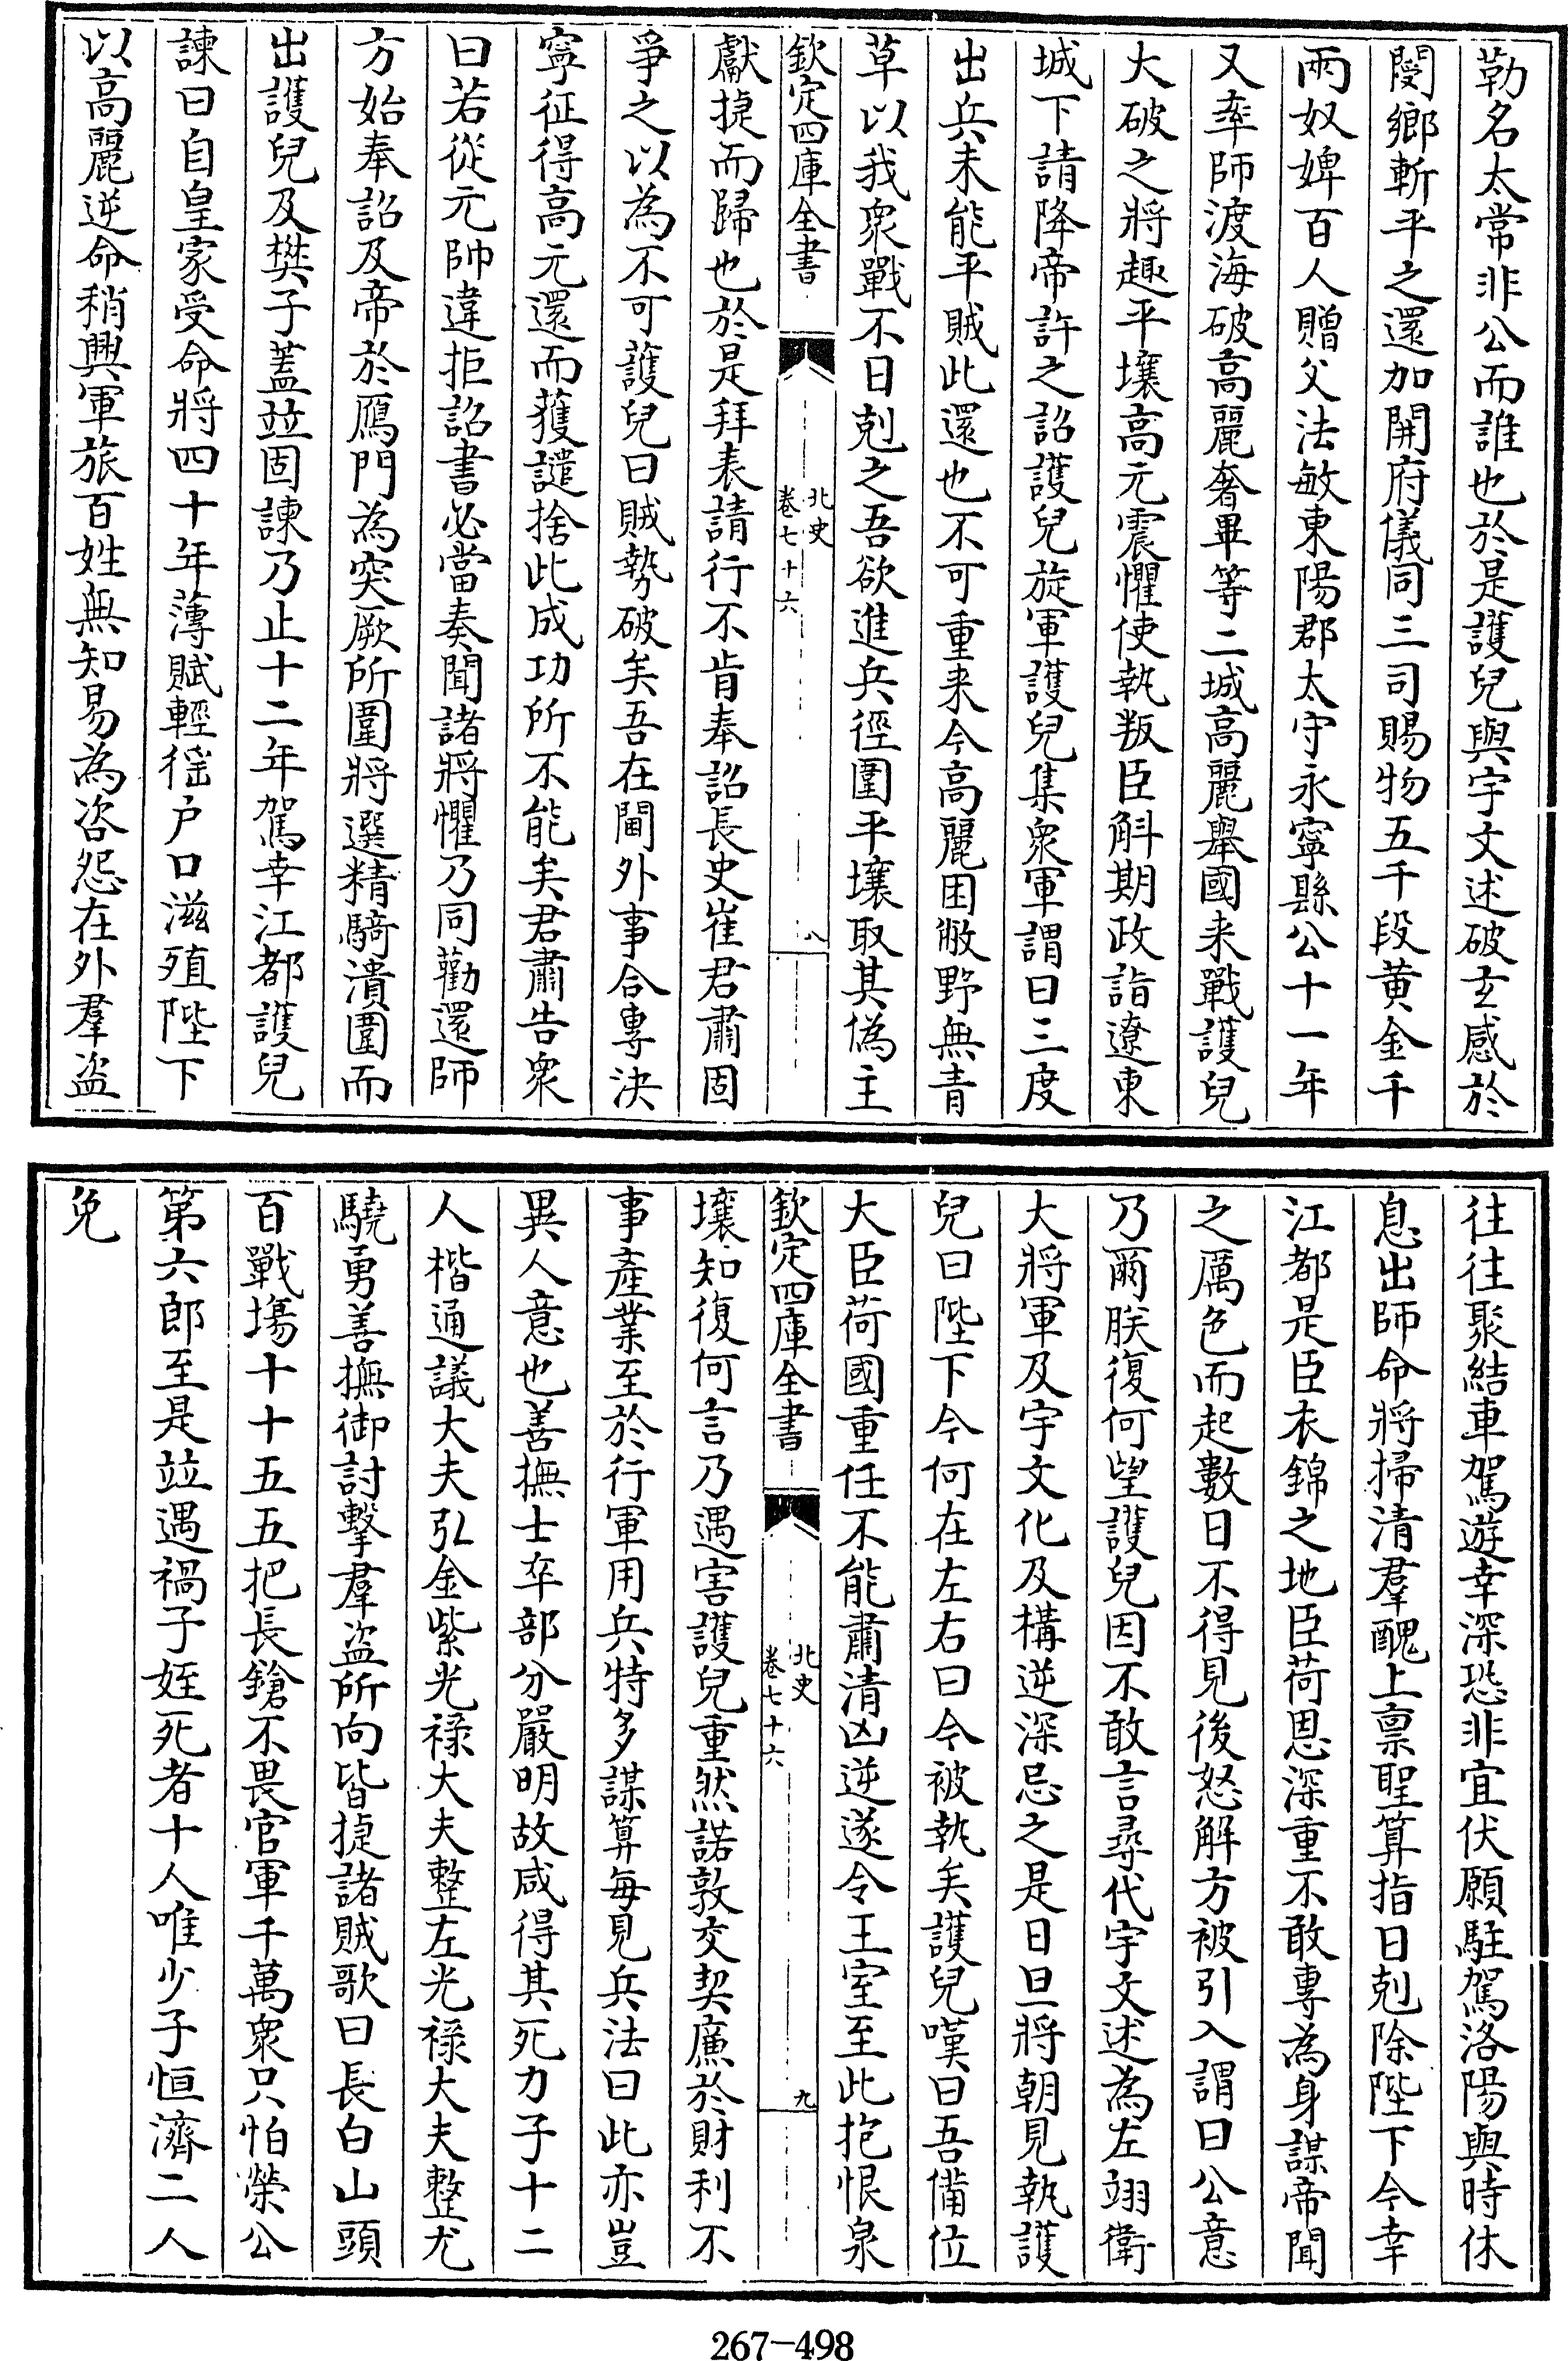 勒名太常非公而誰也於是護兒與宇文述破玄感於
閺鄉斬平之還加開府儀同三司賜物五千段黄金千
兩奴婢百人贈父法敏東陽郡太守永寧縣公十一年
又率師渡海破高麗奢畢等二城高麗舉國来戰護兒
大破之將趣平壤高元震懼使執叛臣斛期政詣遼東
城下請降帝許之詔護兒旋軍護兒集衆軍謂曰三度
出兵未能平賊此還也不可重来今高麗困敝野無青
草以我衆戰不日剋之吾欲進兵徑圍平壤取其偽主
欽定四庫全書
北史
卷七十六
八
獻捷而歸也於是拜表請行不肯奉詔長史崔君肅固
爭之以為不可護兒曰賊勢破矣吾在閫外事合專決
寧征得高元還而獲譴捨此成功所不能矣君肅告衆
曰若從元帥違拒詔書必當奏聞諸將懼乃同勸還師
方始奉詔及帝於鴈門為突厥所圍將選精騎潰圍而
出護兒及樊子蓋竝固諫乃止十二年駕幸江都護兒
諫曰自皇家受命將四十年薄賦輕徭户口滋殖陛下
以高麗逆命稍興軍旅百姓無知易為咨怨在外羣盗
往往聚結車駕遊幸深恐非宜伏願駐駕洛陽與時休
息出師命將掃清羣醜上禀聖算指日剋除陛下今幸
江都是臣衣錦之地臣荷恩深重不敢專為身謀帝聞
之厲色而起數日不得見後怒解方被引入謂曰公意
乃爾朕復何望護兒因不敢言尋代宇文述為左翊衛
大將軍及宇文化及構逆深忌之是日旦將朝見執護
兒曰陛下今何在左右曰今被執矣護兒嘆曰吾備位
大臣荷國重任不能肅清凶逆遂令王室至此抱恨泉
欽定四庫全書
北史
卷七十六
九
壤知復何言乃遇害護兒重然諾敦交契廉於財利不
事產業至於行軍用兵特多謀算每見兵法曰此亦豈
異人意也善撫士卒部分嚴明故咸得其死力子十二
人楷通議大夫弘金紫光禄大夫整左光禄大夫整尤
驍勇善撫御討擊羣盗所向皆捷諸賊歌曰長白山頭
百戰塲十十五五把長鎗不畏官軍千萬衆只怕榮公
第六郎至是竝遇禍子姪死者十人唯少子恒濟二人
免
267-498